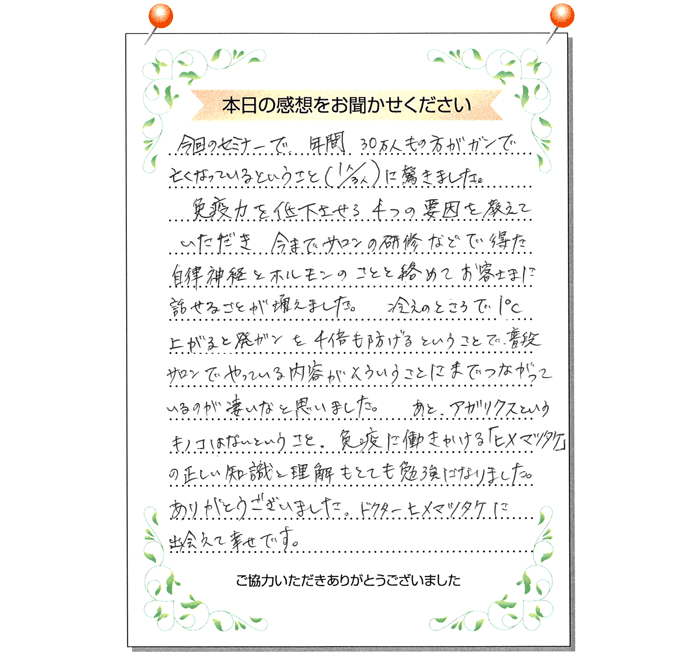 本日の感想をお聞かせください
今回のセミナーで、年間 30万人もの方がガンで
亡くなっているということ(1人/3人)に驚きました。
免疫力を低下させる 4つの要因を教えて
いただき 今までサロンの研修などで得た
自律神経とホルモンのことと絡めてお客さまに
話せることが増えました。 冷えのところで1℃
上がると発ガンを4倍も防げるということで、普段
サロンでやっている内容がそういうことにまでつながって
いるのが凄いなと思いました。 あと、アガリクスという
キノコはないということ、免疫に働きかける「ヒメマツタケ」
の正しい知識と理解もとても勉強になりました。
ありがとうございました。ドクターヒメマツタケに
出会えて幸せです。
ご協力いただきありがとうございました